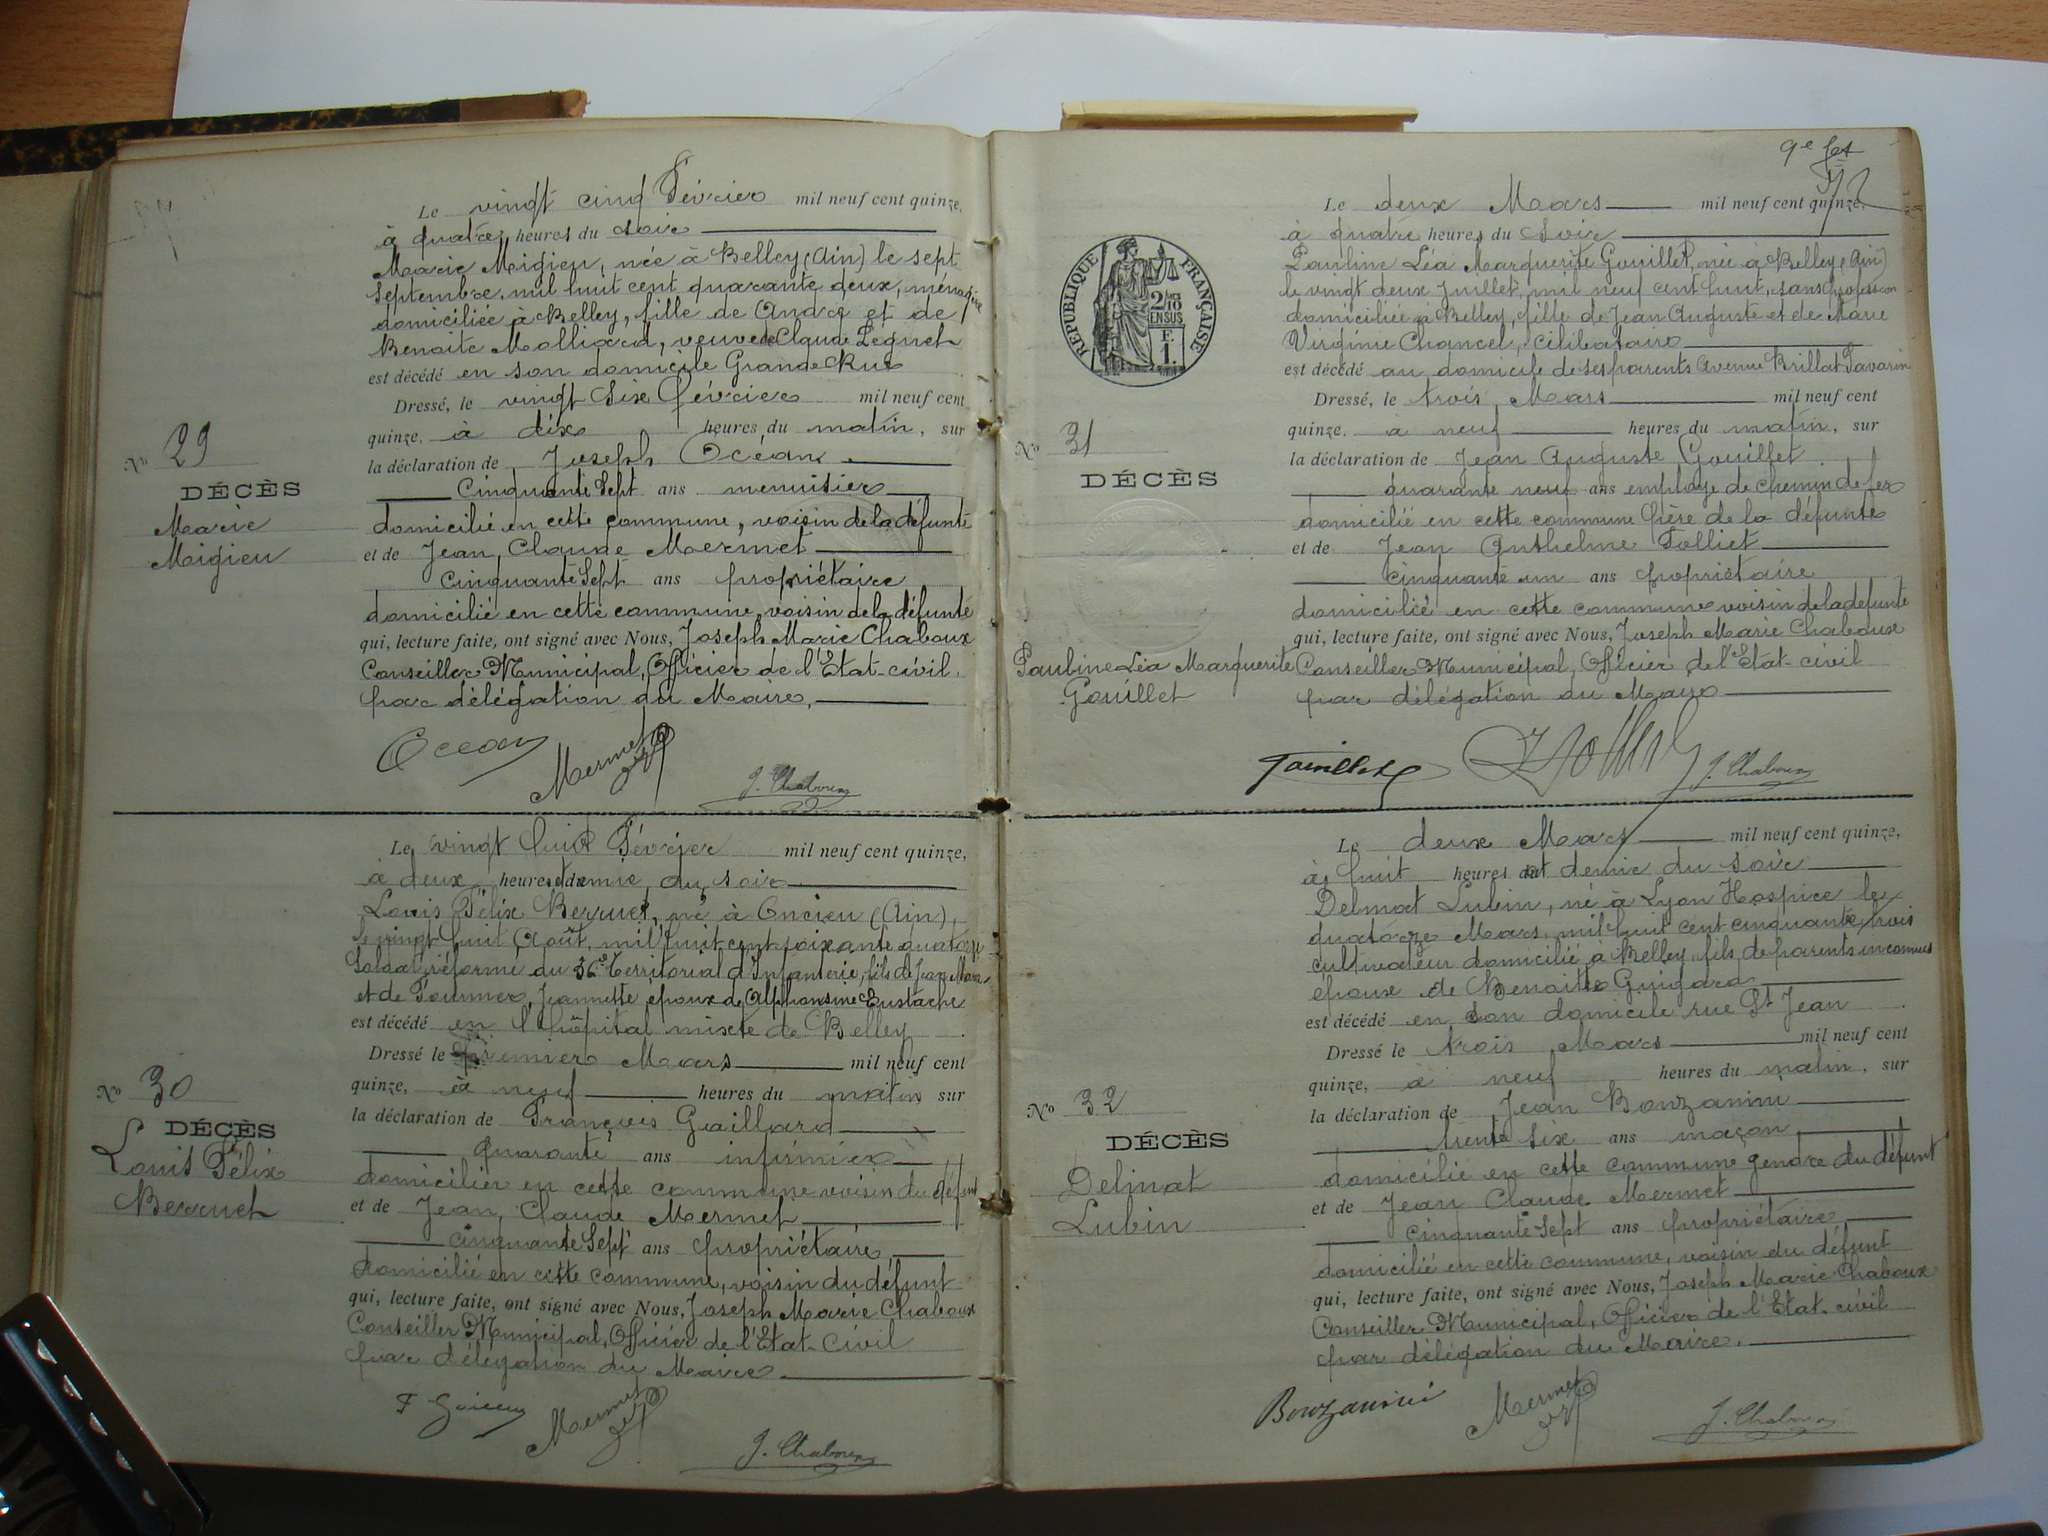 Le vingt cinq Février mil neuf cent quinze,
à quatre heures du soir
Marie Migieu, née à Belley (Ain) le sept
septembre mil huit cent quarante deux, ménagère
domiciliée à Belley, fille de André et de
Benoite Molliard, veuve de Claude Peguet
est décédé en son domicile Grande Rue
Dressé, le vingt six Février mil neuf cent
quinze, à dix heures du matin, sur
la déclaration de Joseph Océan
Cinquante Sept ans menuisier
domicilié en cette commune, voisin de la défunte
et de Jean Claude Mermet
Cinquante Sept ans propriétaire
domicilié en cette commune, voisin de la défunte
qui, lecture faite, ont signé avec Nous, Joseph Marie Chaboux
Conseiller Municipal, Officier de l'Etat-civil
par délégation du Maire,
No 29
DÉCÈS
Marie
Migieu
Ocean
Mermet
J. Chaboux
Le vingt huit Février mil neuf cent quinze,
à deux heures et demie du soir
Louis Félix Berruet, né à Oncieu (Ain),
le vingt huit Août mil huit cent soixante quatorze
Soldat réformé du 56e Territorial d'Infanterie, fils de Jean Marie
et de Fournier Jeannette époux de Alphonsine Eustache
est décédé en l'hôpital mixte de Belley
Dressé le premier Mars mil neuf cent
quinze, à neuf heures du matin sur
la déclaration de François Gaillard
Quarante ans infirmier
domicilier en cette commune voisin du défunt
et de Jean Claude Mermet
cinquante Sept ans propriétaire
domicilié en cette commune, voisin du défunt
qui, lecture faite, ont signé avec Nous, Joseph Marie Chaboux
Conseiller Municipal, Officier de l'Etat-Civil
par délégation du Maire
No 30
DÉCÈS
Louis Félix
Berruet
Mermet
J. Chaboux
9e
RÉPUBLIQUE FRANÇAISE
2/10
EN SUS
F.
1.
Le deux Mars mil neuf cent quinze,
à quatre heures du soir
Pauline Léa Marguerite Gouillet, née à Belley (Ain)
le vingt deux Juillet mil neuf cent huit, sans profession
domiciliée à Belley, fille de Jean Auguste et de Marie
Virginie Chancel, célibataire
est décédé au domicile de ses parents Avenue Brillat Savarin
Dressé, le trois Mars mil neuf cent
quinze, à neuf heures du matin, sur
la déclaration de Jean Auguste Gouillet
quarante neuf ans employé de chemin de fer
domicilié en cette commune père de la défunte
et de Jean Anthelme Folliet
cinquante un ans propriétaire
domicilié en cette commune voisin de la defunte
qui, lecture faite, ont signé avec Nous, Joseph Marie Chaboux
Conseiller Municipal, Officier de l'Etat-civil
par délégation du Maire
No 31
DÉCÈS
Pauline Léa Marguerite
Gouillet
Gouillet
J. Chaboux
Le deux Mars mil neuf cent quinze,
à huit heures et demie du soir
Delmat Lubin, né à Lyon Hospice le
quatorze Mars mil huit cent cinquante trois
cultivateur domicilié à Belley fils de parents inconnus
époux de Benoite Guigard
est décédé en son domicile rue St Jean
Dressé le trois Mars mil neuf cent
quinze, à neuf heures du matin, sur
la déclaration de Jean Bonzanini
trente six ans maçon
domicilié en cette commune gendre du défunt
et de Jean Claude Mermet
cinquante sept ans propriétaire
domicilié en cette commune, voisin du défunt
qui, lecture faite, ont signé avec Nous, Joseph Marie Chaboux
Conseiller Municipal, Officier de l'Etat-civil
par délégation du Maire.
No 32
DÉCÈS
Delmat
Lubin
Bonzanini
Mermet
J. Chaboux